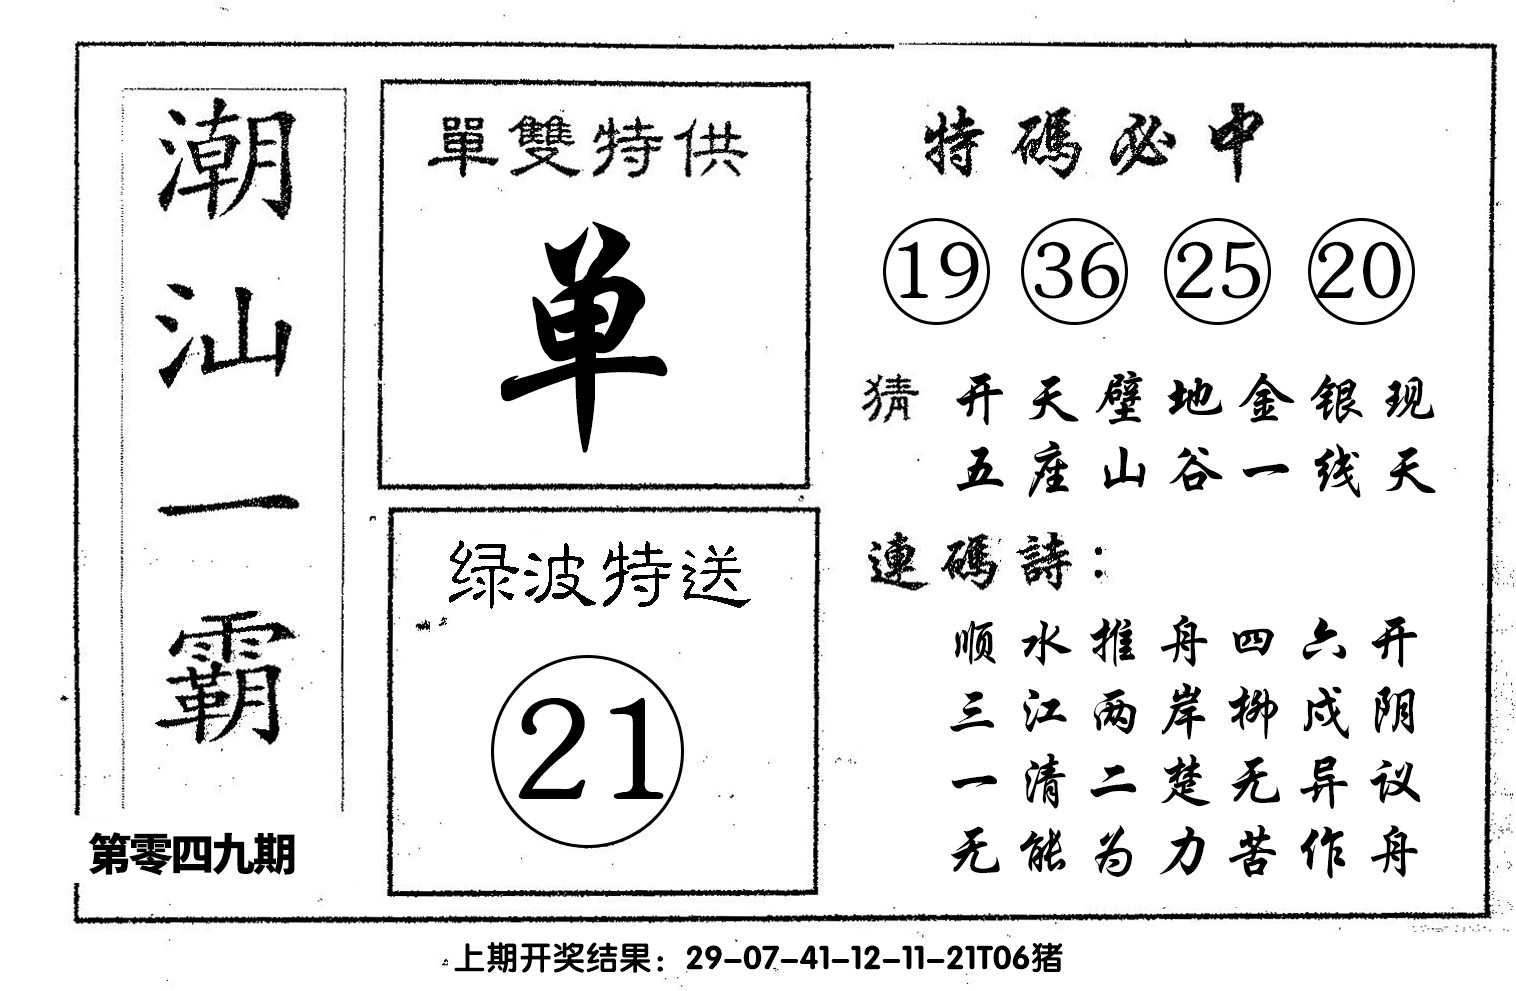 潮汕一霸
第零四九期
單雙特供
单
绿波特送
21
特碼必中
19 36 25 20
猜 开天壁地金银现
五座山谷一线天
連碼詩：
顺水推舟四六开
三江两岸柳成阴
一清二楚无异议
无能为力苦作舟
上期开奖结果：29-07-41-12-11-21T06猪